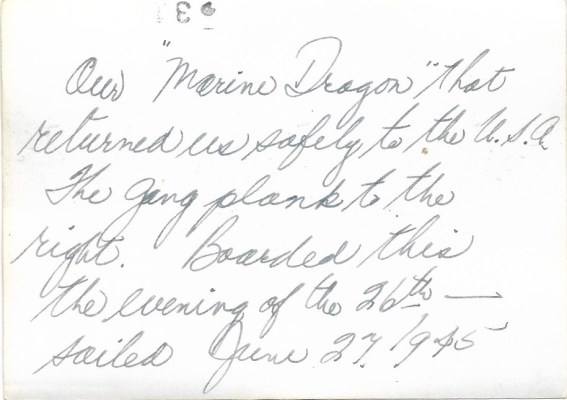 Our "Marine Dragon" that
returned us safely to the U.S.A.
The gang plank to the
right. Boarded this
the evening of the 26th —
sailed June 27, 1945